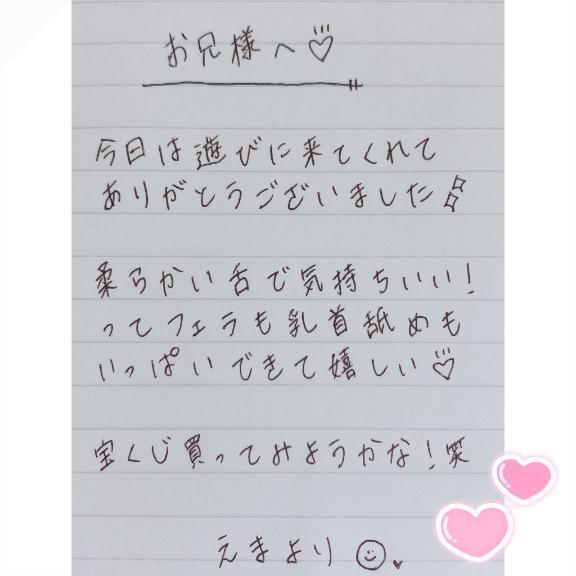 お兄様へ♡
今日は遊びに来てくれて
ありがとうございました!!
柔らかい舌で気持ちいい!
ってフェラも乳首舐めも
いっぱいできて嬉しい♡
宝くじ買ってみようかな!笑
えまより